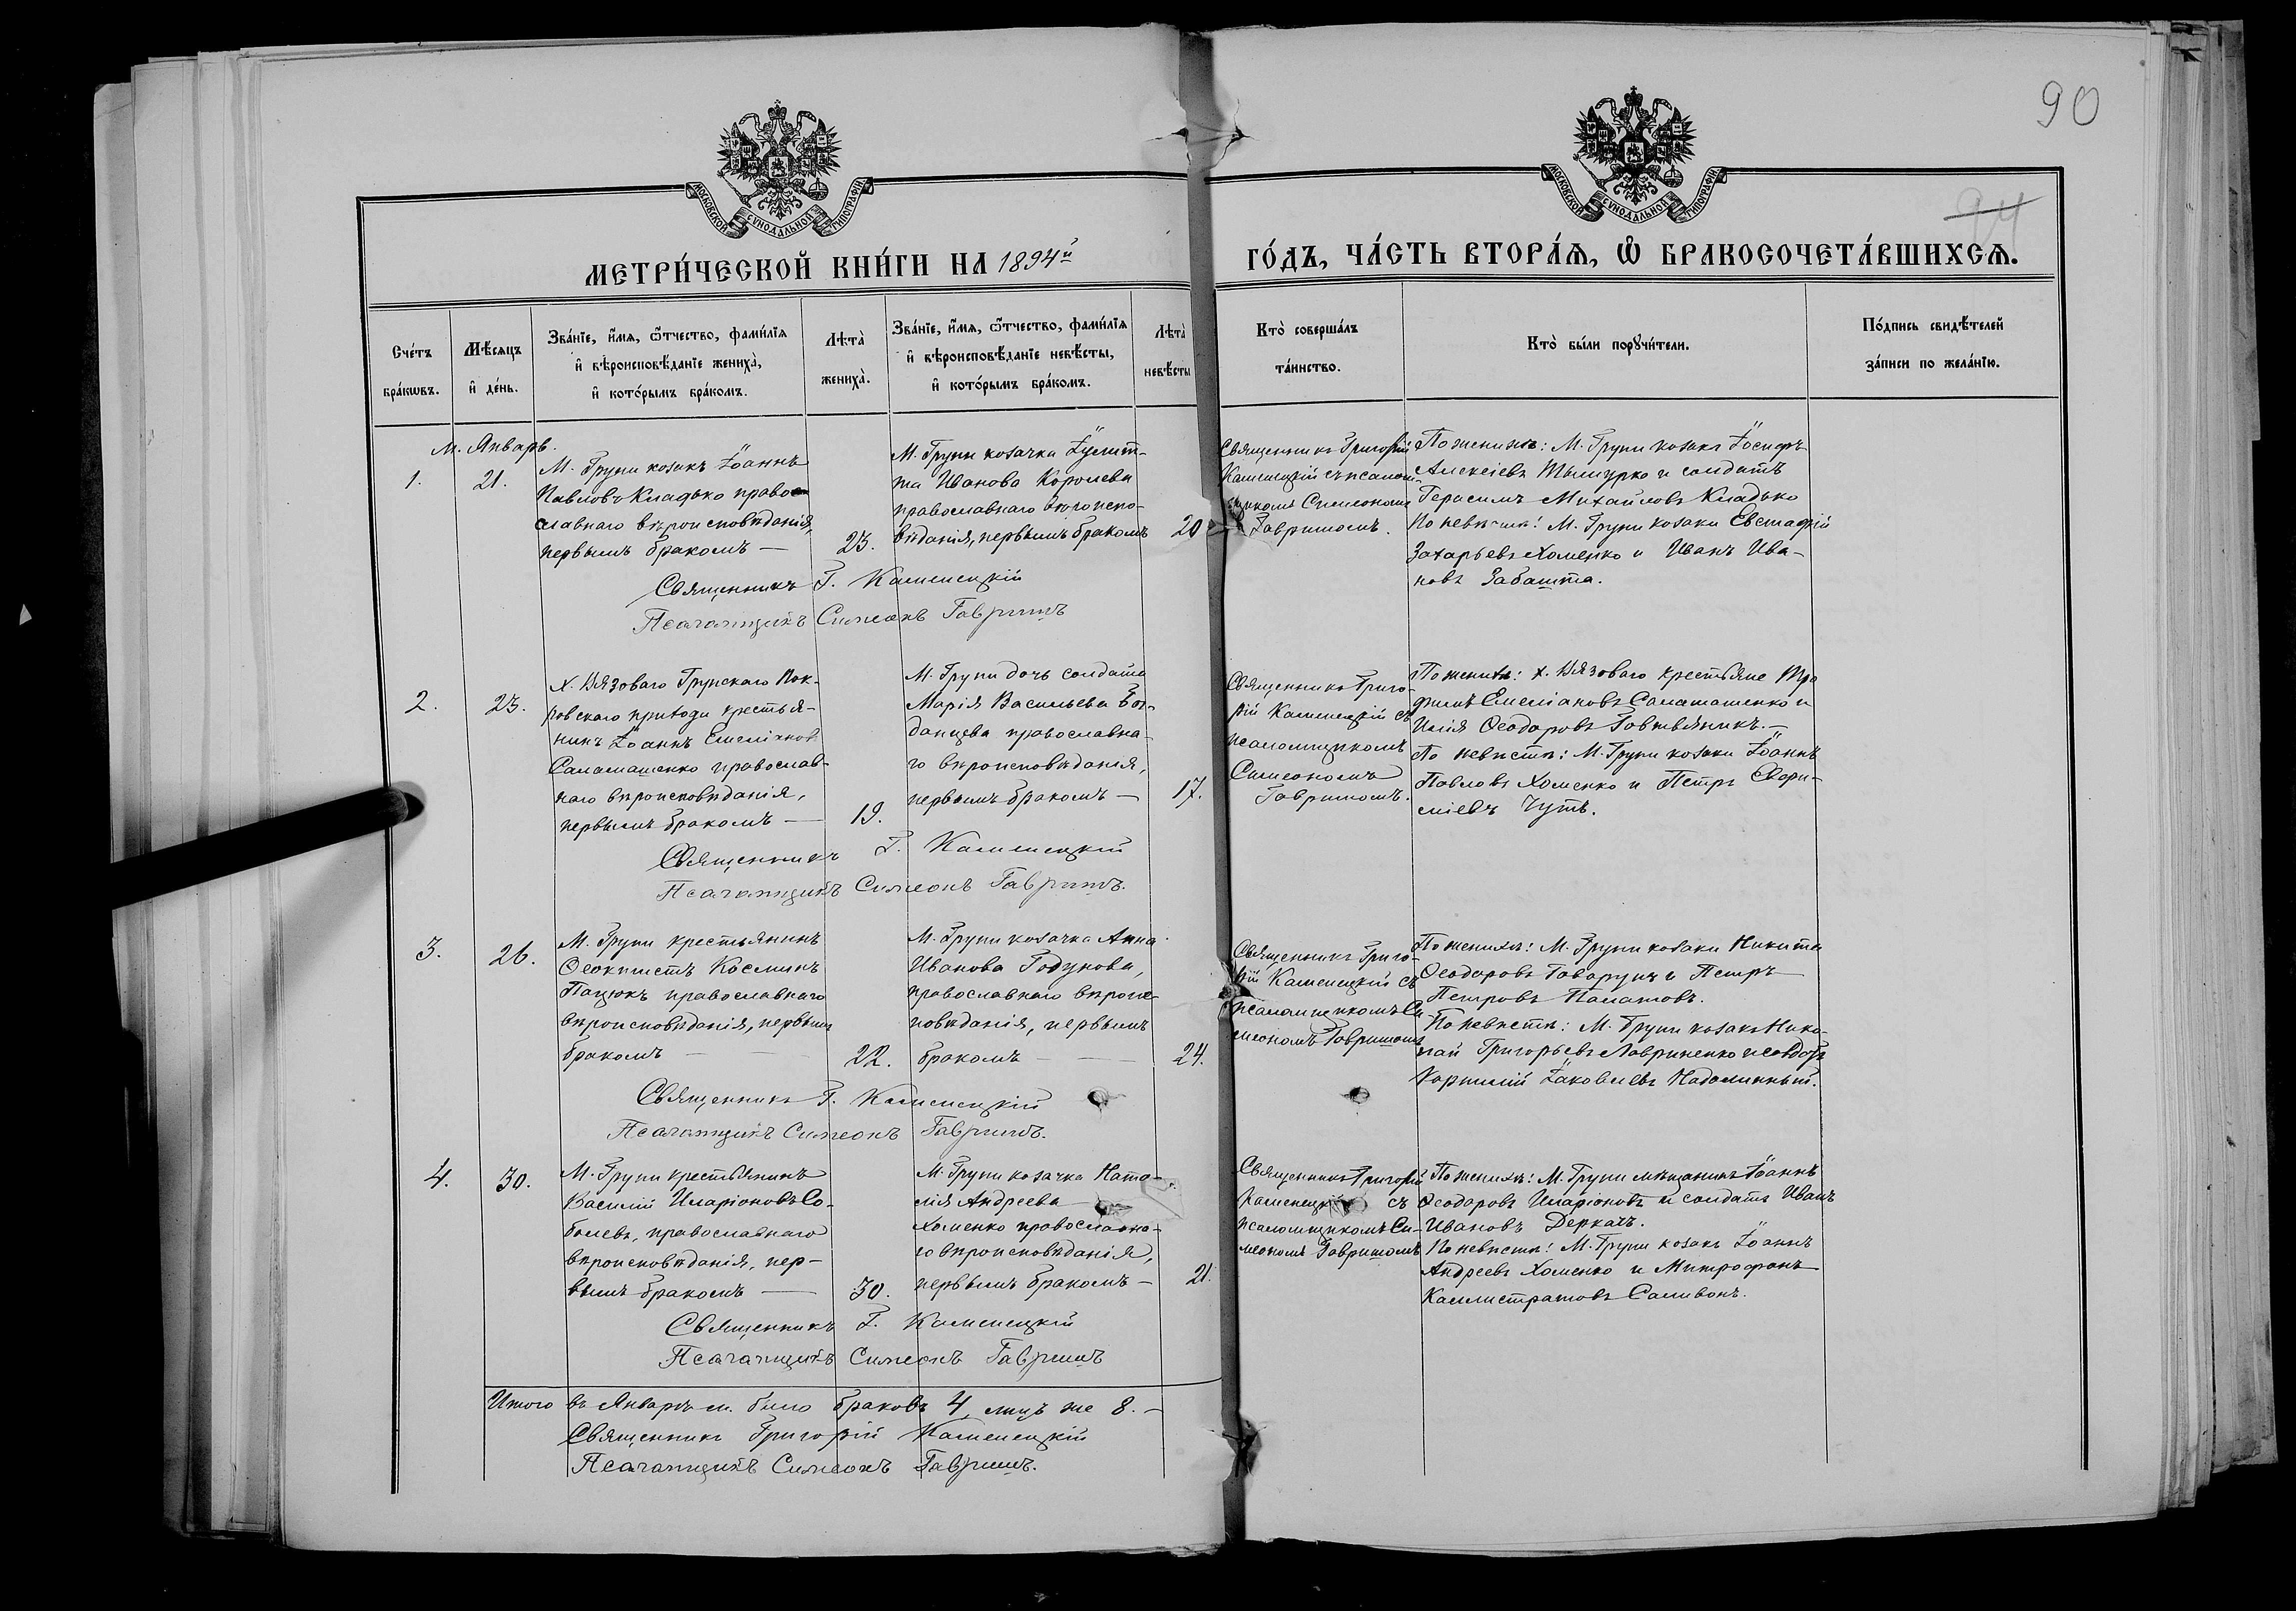 90
94
МОСКОВСКОЙ СѴНОДАЛЬНОЙ ТИПОГРАФІИ
МОСКОВСКОЙ СѴНОДАЛЬНОЙ ТИПОГРАФІИ
МЕТРИ́ЧЕСКОЙ КНИ́ГИ НА 1894й
ГО́ДЪ, ЧА́СТЬ ВТОРА́Ѧ, Ѽ БРАКОСОЧЕТА́ВШИХСѦ.
Сче́тъ
бра́кѡвъ.
Мѣ́сѧцъ
и҆ де́нь.
Зва́нїе, и҆́мѧ, ѻ҆́тчество, фами́лїѧ
и҆ вѣроисповѣ́данїе жениха̀,
и҆ кото́рымъ бра́комъ.
Лѣта̀
жениха̀.
Зва́нїе, и҆́мѧ, ѻ҆́тчество, фами́лїѧ
и҆ вѣроисповѣ́данїе невѣ́сты,
и҆ кото́рымъ бра́комъ.
Лѣта̀
невѣ́сты
Кто̀ соверша́лъ
та́инство.
Кто̀ бы́ли порꙋчи́тели.
По́дпись свидѣ́телей
за́писи по жела́нїю.
М. Январь.
1.
21.
М. Груни козакъ Іоаннъ
Павловъ Кладько право
славнаго вѣроисповѣданія,
первымъ бракомъ —
23.
М. Груни козачка Іулит-
та Иванова Королева
православнаго вѣроиспо-
вѣданія, первымъ бракомъ
20
Священникъ Григорій
Каменецкій съ псалом-
щикомъ Симеономъ
Гавришомъ.
По женихѣ: М. Груни козакъ Іосифъ
Алексіевъ Тымурко и солдатъ
Герасимъ Михайловъ Кладько
По невѣстѣ: М. Груни козаки Евстафій
Захарьевъ Хоменко и Иванъ Ива-
новъ Забашта.
Священникъ Г. Каменецкій
Псаломщикъ Симеонъ Гавришъ
2.
23.
Х. Вязоваго Грунскаго Пок-
ровскаго прихода крестья-
нинъ Іоаннъ Емеліановъ
Саламашенко православ-
наго вѣроисповѣданія,
первымъ бракомъ —
19.
М. Груни дочь солдата
Марія Васильева Бог-
данцева православна-
го вѣроисповѣданія,
первымъ бракомъ —
17.
Священникъ Григо-
рій Каменецкій съ
псаломщикомъ
Симеономъ
Гавришомъ.
По женихѣ: х. Вязоваго крестьяне Тро
фимъ Емеліановъ Саламашенко и
Илія Ѳеодоровъ Говжвяникъ. —
По невѣстѣ: М. Груни козаки Іоаннъ
Павловъ Хоменко и Петръ Евфи-
міевъ Чутъ.
Священникъ Г. Каменецкій
Псаломщикъ Симеонъ Гавришъ.
3.
26.
М. Груни крестьянинъ
Ѳеоктистъ Косминъ
Пацюкъ православнаго
вѣроисповѣданія, первымъ
бракомъ — —
22.
М. Груни козачка Анна
Иванова Годунова,
православнаго вѣроис-
повѣданія, первымъ
бракомъ — —
24.
Священникъ Григо-
рій Каменецкій съ
псаломщикомъ Си-
меономъ Гавришомъ
По женихѣ: М. Груни козаки Никита
Ѳеодоровъ Говарунъ и Петръ
Петровъ Паламовъ.
По невѣстѣ: М. Груни козакъ Нико-
лай Григорьевъ Лавриненко и солдатъ
Корнилій Іаковлевъ Надолинный.
Священникъ Г. Каменецкій
Псаломщикъ Симеонъ Гавришъ.
4.
30.
М. Груни крестьянинъ
Василій Иларіоновъ Со-
болевъ, православнаго
вѣроисповѣданія, пер-
вымъ бракомъ —
30.
М. Груни козачка Ната-
лія Андреева
Хоменко православна-
го вѣроисповѣданія,
первымъ бракомъ —
21.
Священникъ Григорій
Каменецкій съ
псаломщикомъ Си-
меономъ Гавришомъ
По женихѣ: М. Груни мѣщанинъ Іоаннъ
Ѳеодоровъ Иларіоновъ и солдатъ Иванъ
Ивановъ Деркачъ.
По невѣстѣ: М. Груни козакъ Іоаннъ
Андреевъ Хоменко и Митрофанъ
Каллистратовъ Саливонъ.
Священникъ Г. Каменецкій
Псаломщикъ Симеонъ Гавришъ
Итого въ Январѣ м. было браковъ 4, лицъ же 8. —
Священникъ Григорій Каменецкій
Псаломщикъ Симеонъ Гавришъ.